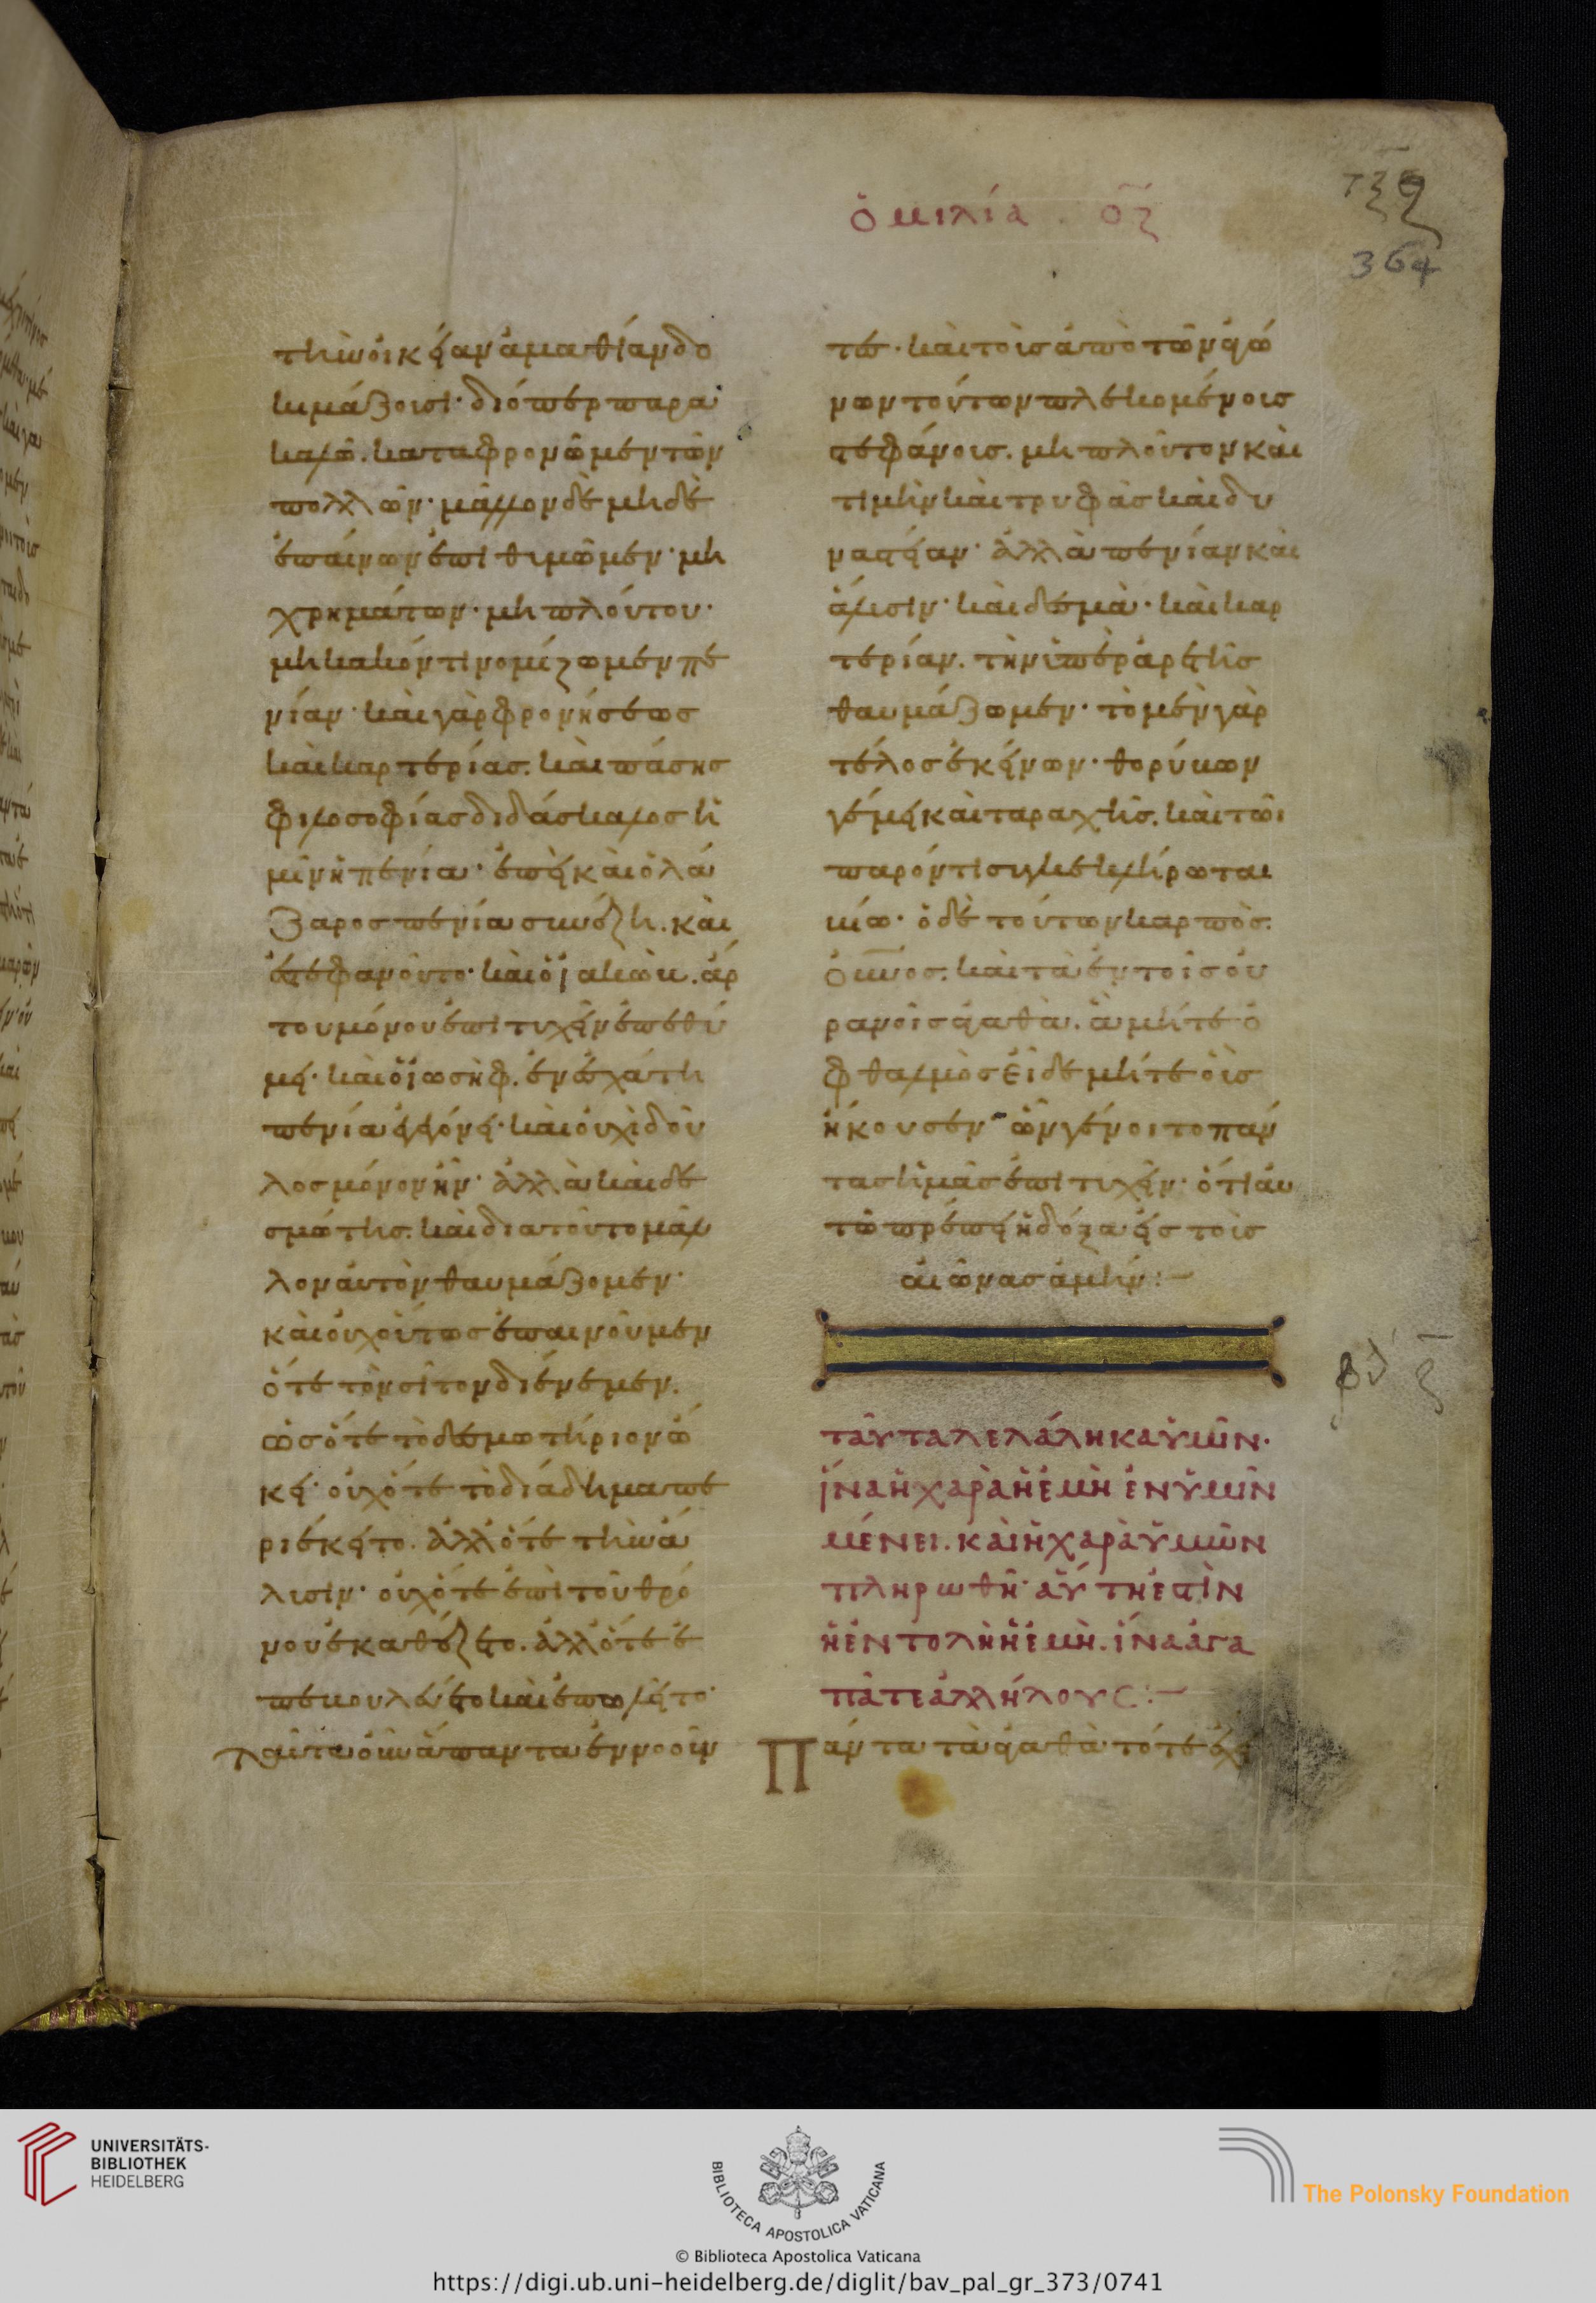 ὁμιλία. οζ
τξδ
364
τὴν οἰκείαν ἀμαθίαν δο
κιμάζουσι· διόπερ παρα
καλῶ. καταφρονῶμεν τῶν
πολλῶν· μᾶλλον δὲ μὴ δὲ
ἐπαίνων ἐπιθυμῶμεν· μὴ
χρημάτων· μὴ πλούτου·
μὴ κακόν τι νομίζωμεν πε
νίαν· καὶ γὰρ φρονήσεως
καὶ καρτερίας. καὶ πάσης
φιλοσοφίας διδάσκαλος ἡ
μῖν ἡ πενία· ἐπεὶ καὶ ὁ λά
ζαρος πενία συνέζη. καὶ
ἐστεφανοῦτο. καὶ ὁ ἰακὼβ. ἄρ
του μόνου ἐπιτυχεῖν ἐπεθύ
μει· καὶ ὁ ἰωσὴφ. ἐν ἐσχάτη
πενία εἱστήκει· καὶ οὐχὶ δοῦ
λος μόνον ἦν· ἀλλὰ καὶ δε
σμώτης. καὶ διὰ τοῦτο μᾶλ
λον αὐτὸν θαυμάζομεν·
καὶ οὐχ οὕτως ἐπαινοῦμεν
ὅτε τὸν σῖτον διένεμεν.
ὡς ὅτε τὸ δεσμωτήριον ᾤ
κει· οὐχ ὅτε τὸ διάδημα πε
ριέκειτο. ἀλλ' ὅτε τὴν ἅ
λυσιν· οὐχ ὅτε ἐπὶ τοῦ θρό
νου ἐκαθέζετο. ἀλλ' ὅτε ἐ
πεβουλεύετο καὶ ἐπωλεῖτο·
ταῦτα οὖν ἅπαντα ἐννοοῦν
τες· καὶ τοὺς ἀπὸ τῶν ἀγώ
νων τούτων πλεκομένους
στεφάνους. μὴ πλοῦτον καὶ
τιμὴν καὶ τρυφὰς καὶ δυ
ναστείαν· ἀλλὰ πενίαν καὶ
ἅλυσιν· καὶ δεσμὰ· καὶ καρ
τερίαν. τὴν ὑπὲρ ἀρετῆς
θαυμάζωμεν· τὸ μὲν γὰρ
τέλος ἐκείνων· θορύβων
γέμει καὶ ταραχῆς. καὶ τῶι
παρόντι συγκεκλήρωται
βίω· ὁ δὲ τούτων καρπὸς.
ὁ οὐνος. καὶ τὰ ἐν τοῖς οὐ
ρανοῖς ἀγαθὰ. ἃ μήτε ὀ
φθαλμὸς εἶδε μήτε οὖς
ἤκουσεν· ὧν γένοιτο πάν
τας ἡμᾶς ἐπιτυχεῖν· ὅτι αὐ
τῶ πρέπει ἡ δόξα εἰς τοὺς
αἰῶνας ἀμήν:-
ταῦτα λελάληκα ὑμῖν.
ἵνα ἡ χαρὰ ἡ ἐμὴ ἐν ὑμῖν
μένει. καὶ ἡ χαρὰ ὑμῶν
πληρωθῆ· αὕτη ἐστὶν
ἡ ἐντολὴ ἡ ἐμὴ. ἵνα ἀγα
πᾶτε ἀλλήλους:-
Πάντα τὰ ἀγαθὰ τότε ἔχει
UNIVERSITÄTS-
BIBLIOTHEK
HEIDELBERG
BIBLIOTECA APOSTOLICA VATICANA
The Polonsky Foundation
© Biblioteca Apostolica Vaticana
https://digi.ub.uni-heidelberg.de/diglit/bav_pal_gr_373/0741